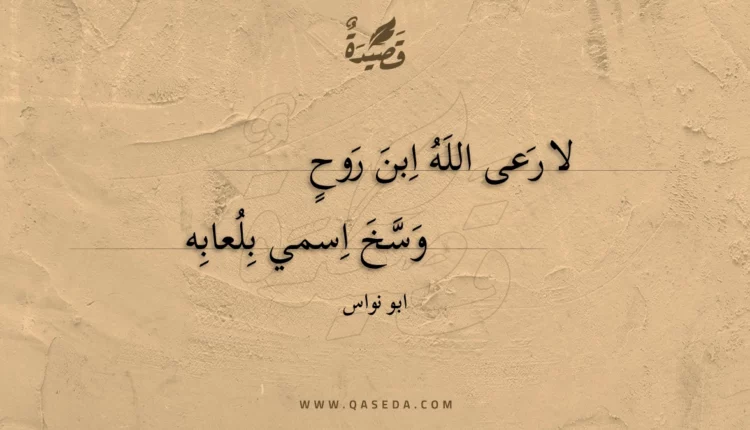 قَصِيدَةٌ
لا رَعى اللَهُ اِبنَ رَوحٍ
وَسَّخَ اِسمي بِلُعابِه
ابو نواس
WWW.QASEDA.COM